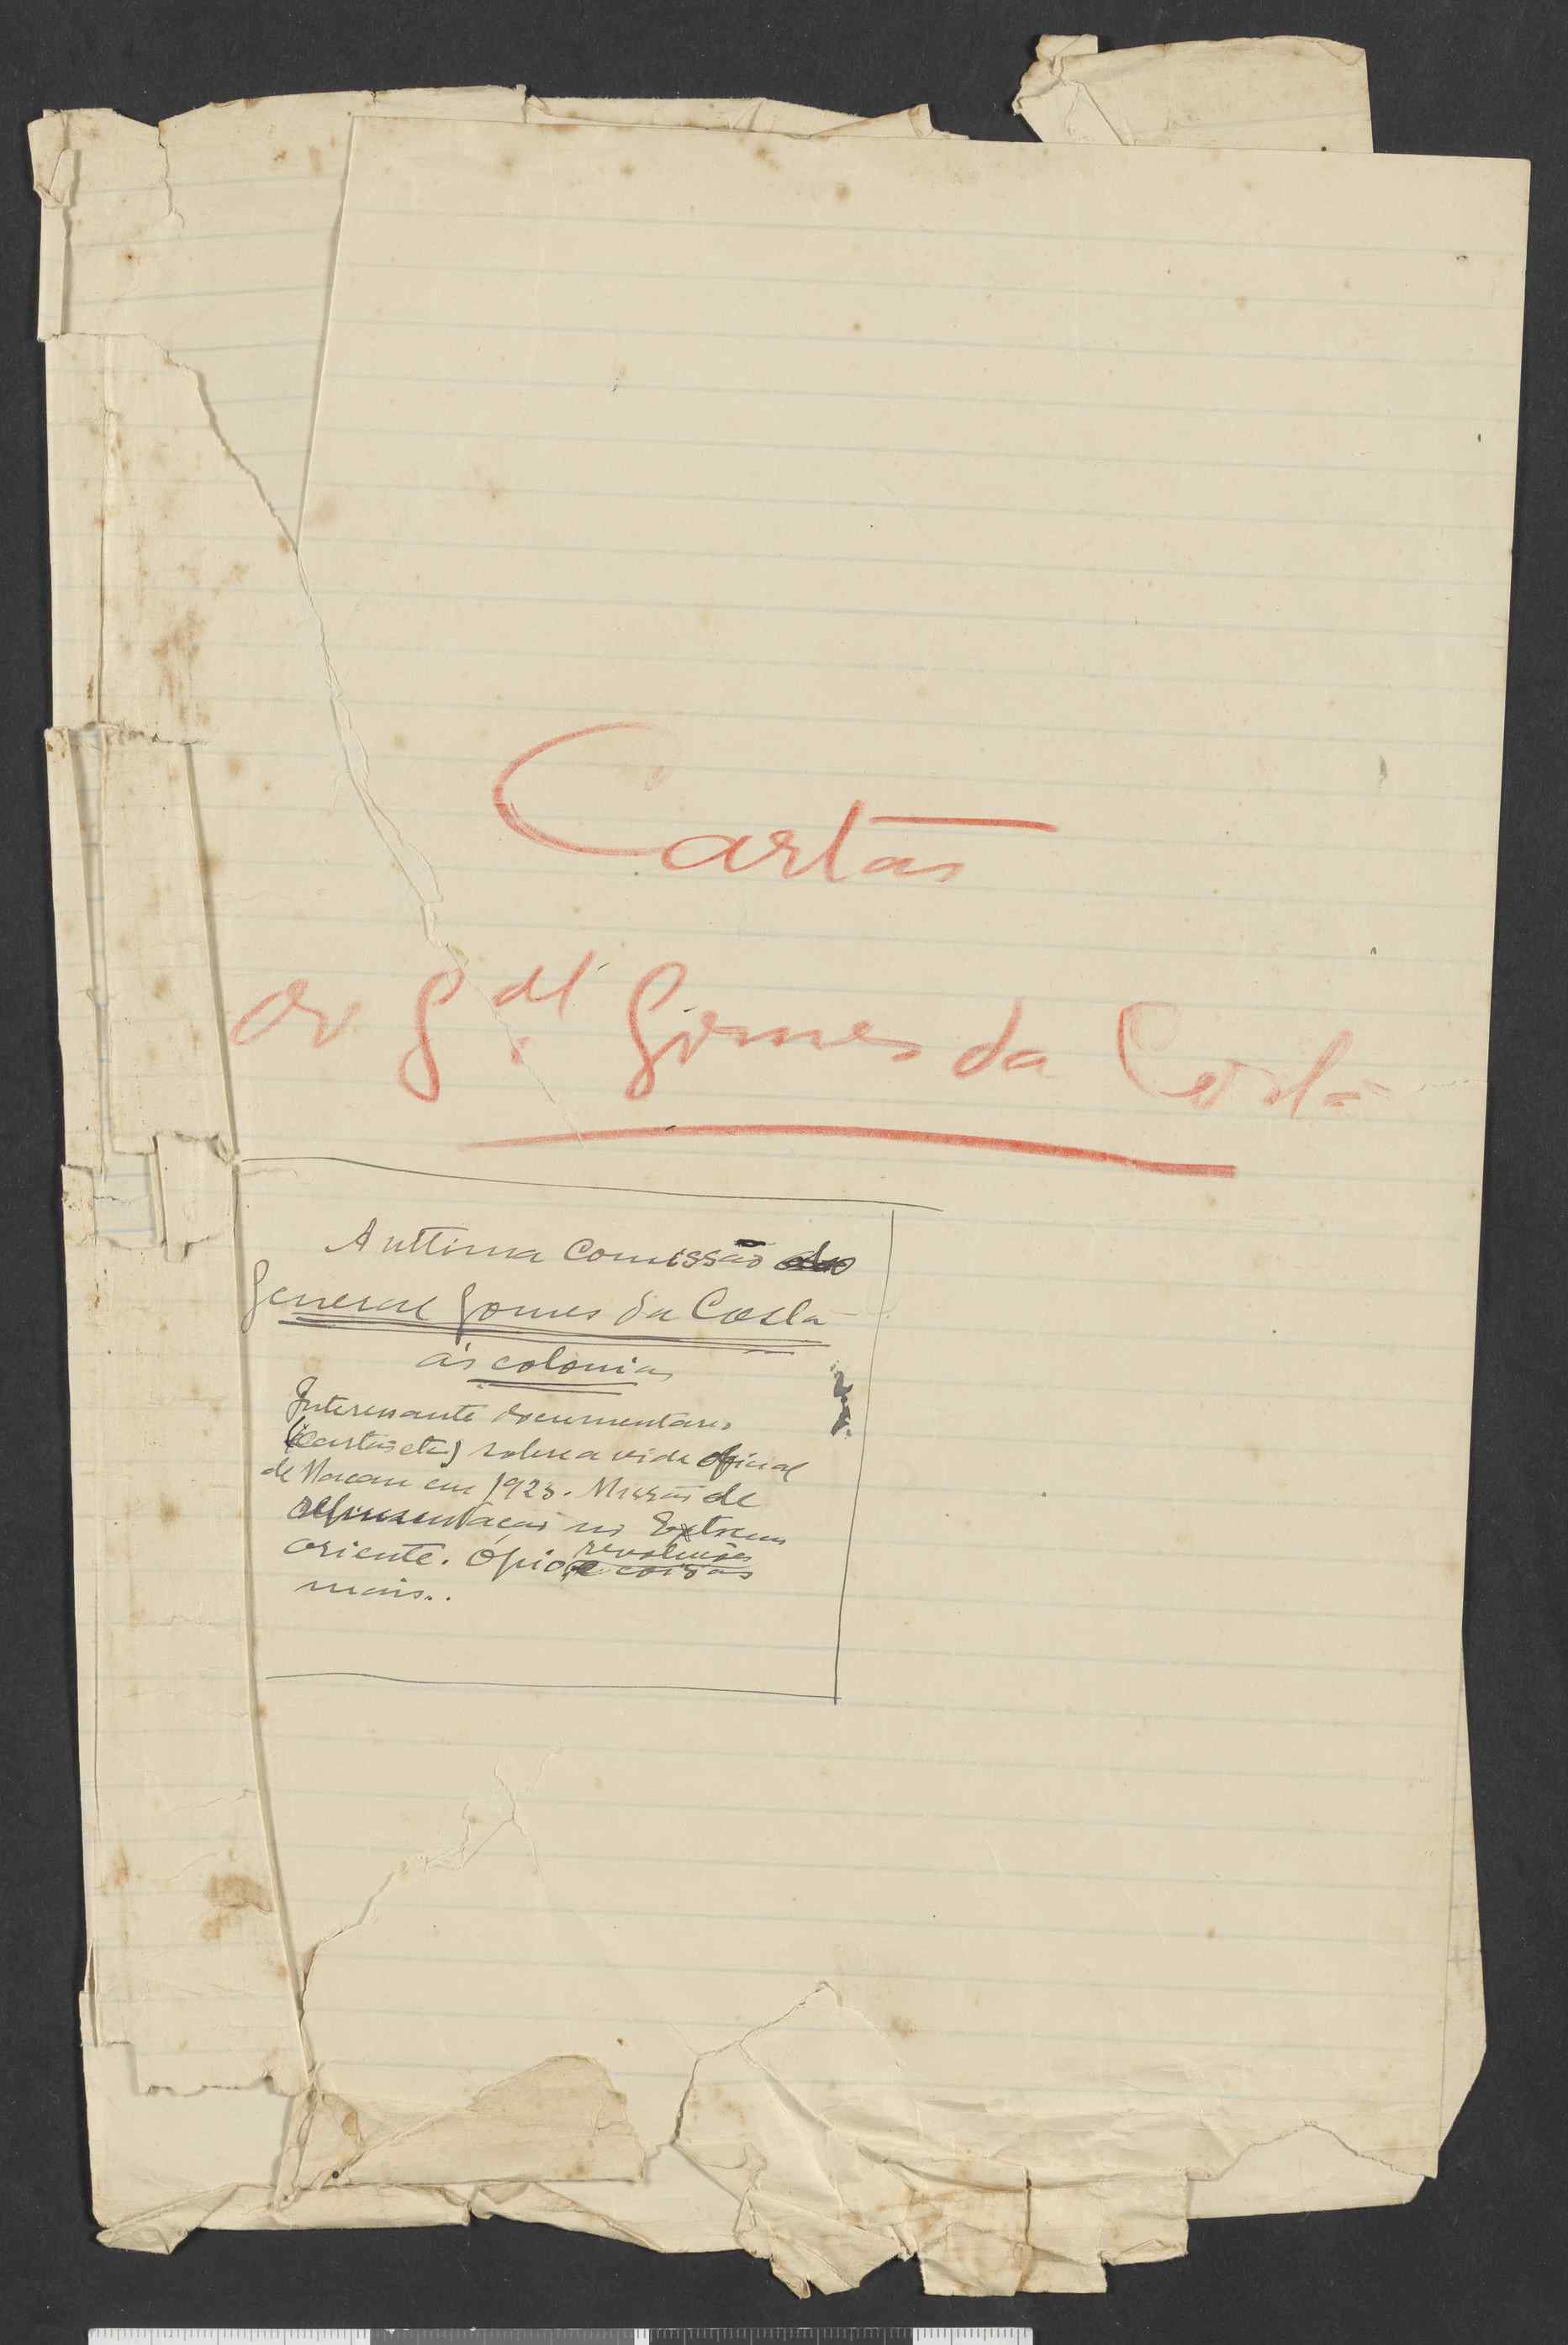 Cartas
do G.al Gomes da Costa
A ultima Comissão do
General Gomes da Costa
ás colonias
Interessante documentario
(cartas etc) sobre a vida oficial
de Macau em 1923. Missão de
representação no Extremo
oriente. Ópio, revoluções
e coisas
mais..